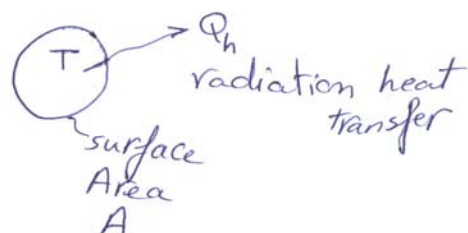 T
Qh
radiation heat
transfer
surface
Area
A